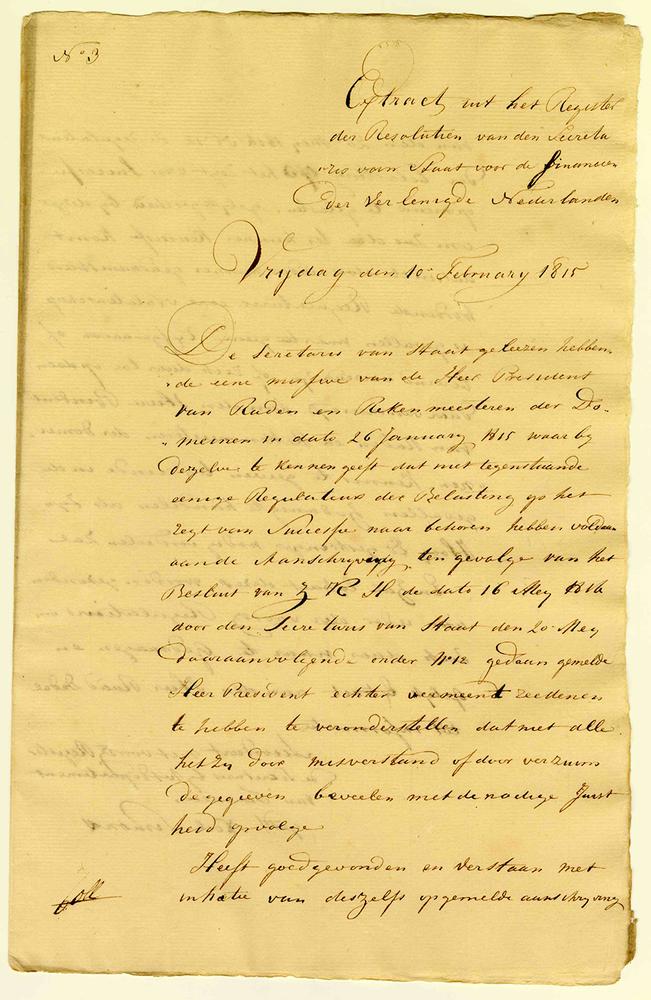 No 3
Extract uit het Register
der Resolutien van den Secreta
"ris van Staat voor de financien
der Vereenigde Nederlanden
Vrydag den 10 February 1815
De Secretaris van Staat geleezen hebben„
„de eene missive van de Heer President
van Raden en Rekenmeesteren der Do„
„meinen in dato 26 January 1815 waarby
dezelve te kennen geeft dat niet tegenstaande
eenige Regulateurs der Belasting op het
regt van Successie naar behoren hebben voldaan
aan de Aanschryving, ten gevolge van het
Besluit van Z K H de dato 16 Mey
door den Secretaris van Staat den 20 Mey
daaraanvolgende onder No 12 gedaan gemelde
Heer President echter vermeend reedenen
te hebben te veronderstellen dat niet alle
het zy door misverstand of door verzuim
de gegeven beveelen met de nodige Juist
heid opvolge
Heeft goedgevonden en verstaan met
inhaesie van deszelfs opgemelde aanschryving